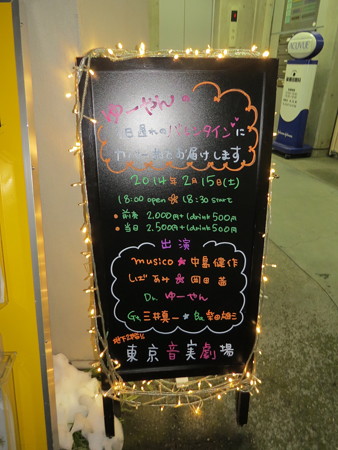 ゆーやんの
1日遅れのバレンタインに
お届けします
2014年2月15日(土)
18:00 open 18:30 start
前売 2,000円+1drink500円
当日 2,500円+1drink500円
出演
musico 中島健作
しばあみ 岡田
Dr. ゆーやん
Gt 三井真一 Ba
東京音実劇場
ACUVUE